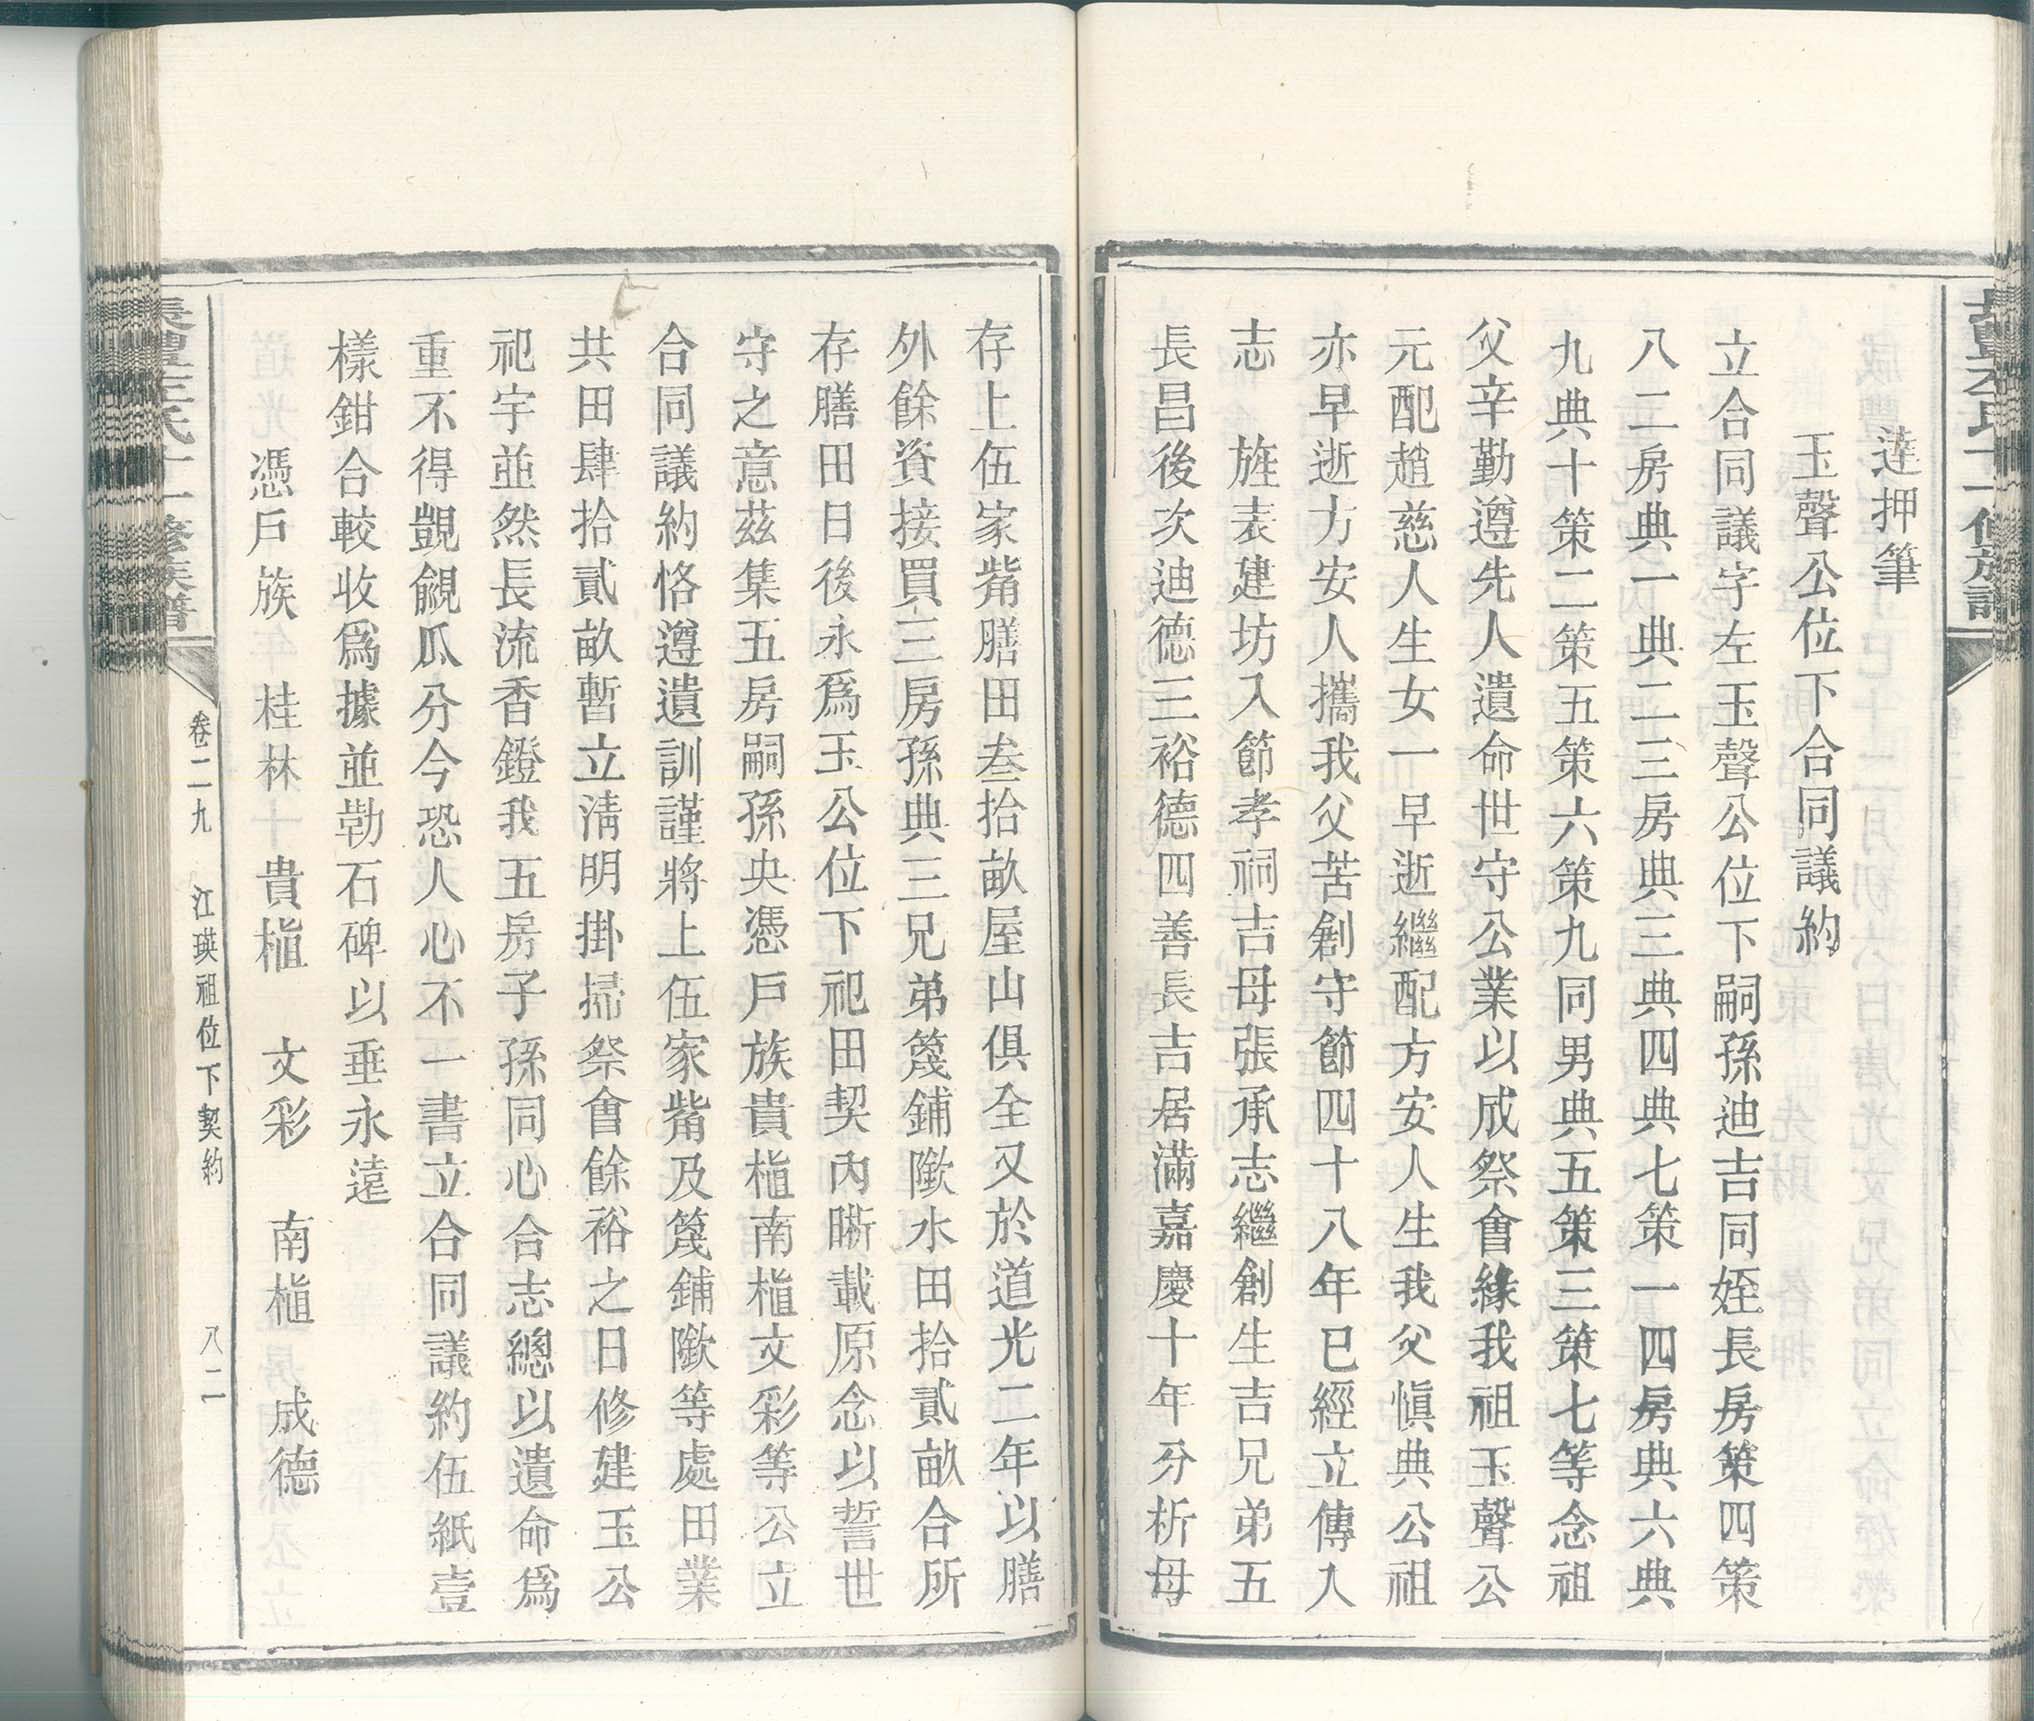 達押筆
玉聲公位下合同議約
立合同議字左玉聲公位下嗣孫迪吉同姪長房策四策
八二房典一典二三房典三典四典七策一四房典六典
九典十策二策五策六策九同男典五策三策七等念祖
父辛勤遵先人遺命世守公業以成祭會緣我祖玉聲公
元配趙慈人生女一早逝繼配方安人生我父愼典公祖
亦早逝方安人攜我父苦創守節四十八年已經立傳入
志 旌表建坊入節孝祠吉母張承志繼創生吉兄弟五
長昌後次迪德三裕德四善長吉居滿嘉慶十年分析母
存上伍家觜膳田叁拾畝屋山俱全又於道光二年以膳
外餘資接買三房孫典三兄弟篾鋪隞水田拾貳畝合所
存膳田日後永爲玉公位下祀田契內晰載原念以誓世
守之意茲集五房嗣孫央憑戶族貴樀南樀文彩等公立
合同議約恪遵遺訓謹將上伍家觜及篾鋪隞等處田業
共田肆拾貳畝暫立淸明掛掃祭會餘裕之日修建玉公
祀宇並然長流香鐙我五房子孫同心合志總以遺命爲
重不得覬覦瓜分今恐人心不一書立合同議約伍紙壹
樣鉗合較收爲據並勒石碑以垂永遠
憑戶族 桂林 貴樀 文彩 南樀 成德
卷二九 江瑛祖位下契約 八二